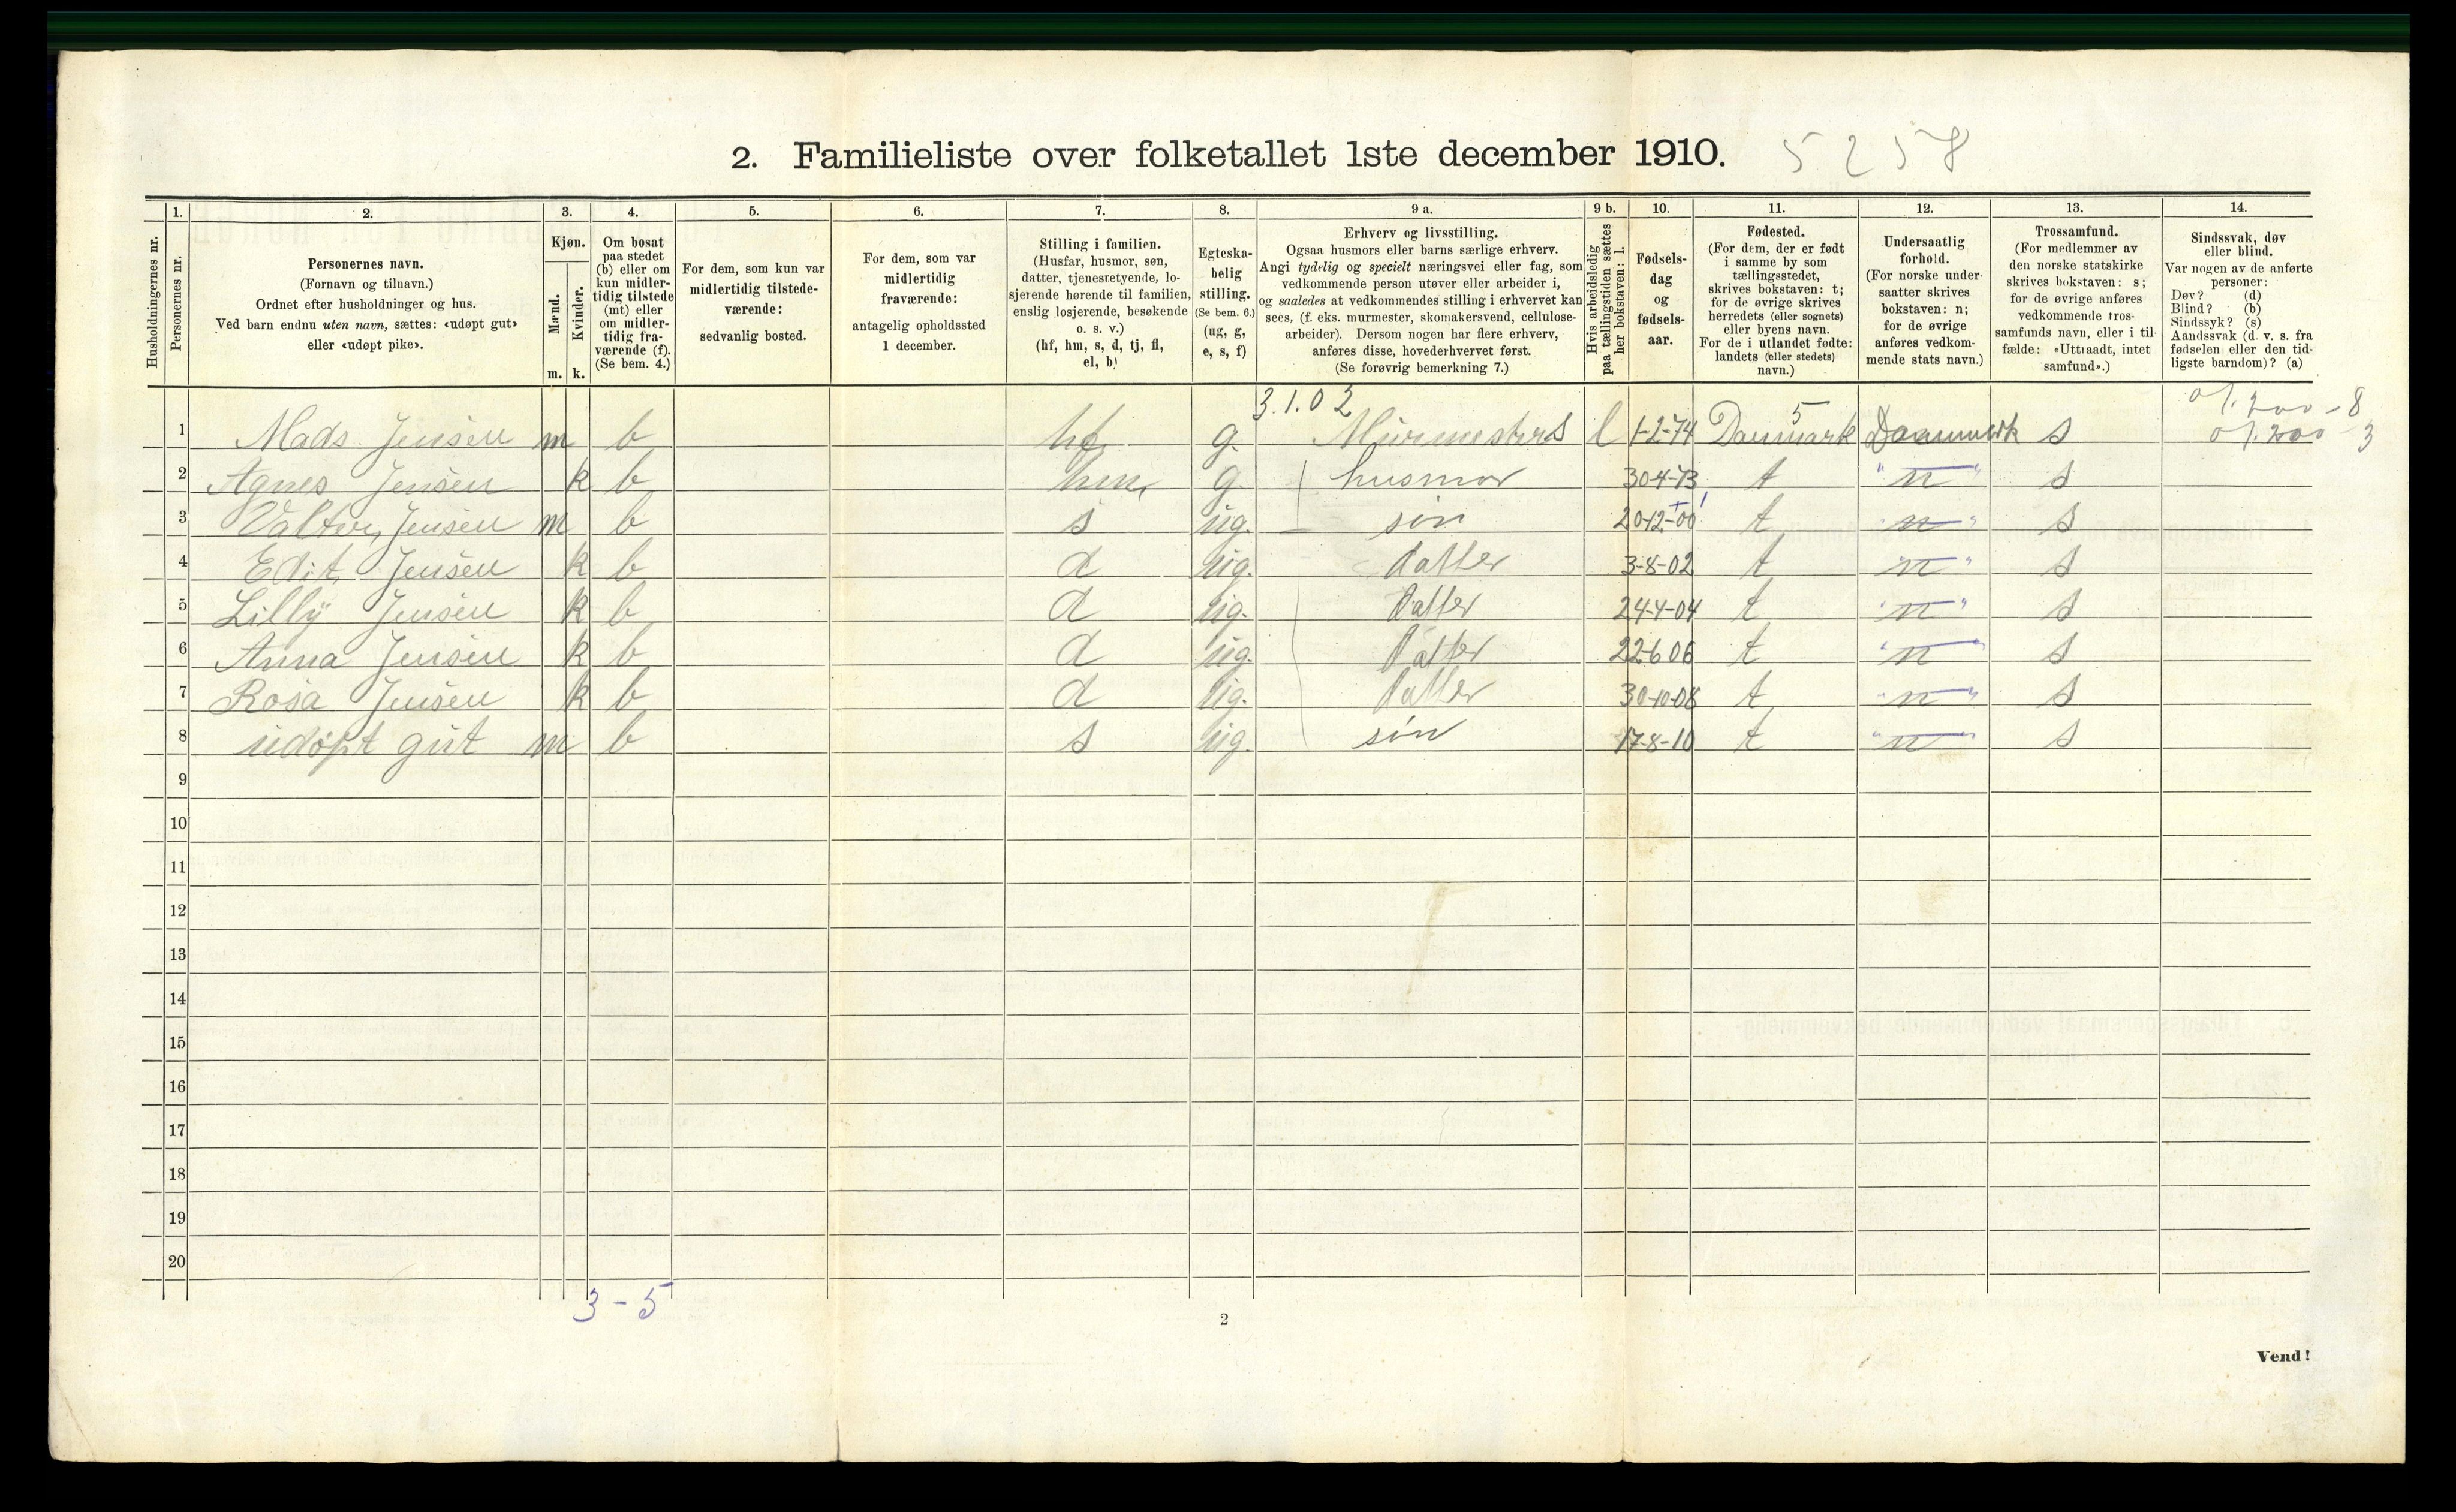 2. Familieliste over folketallet 1ste december 1910. 5258
1. 2. 3. 4. 5. 6. 7. 8. 9 a. 9 b. 10. 11. 12. 13. 14.
Husholdningernes nr.
Personernes nr.
Personernes navn.
(Fornavn og tilnavn.)
Ordnet efter husholdninger og hus.
Ved barn endnu uten navn, sættes: «udøpt gut»
eller «udøpt pike».
Kjøn.
Mænd.
Kvinder.
m. k.
Om bosat
paa stedet
(b) eller om
kun midler-
tidig tilstede
(mt) eller
om midler-
tidig fra-
værende (f).
(Se bem. 4.)
For dem, som kun var
midlertidig tilstede-
værende:
sedvanlig bosted.
For dem, som var
midlertidig
fraværende:
antagelig opholdssted
1 december.
Stilling i familien.
(Husfar, husmor, søn,
datter, tjenestetyende, lo-
sjerende hørende til familien,
enslig losjerende, besøkende
o. s. v.)
(hf, hm, s, d, tj, fl,
el, b)
Egteska-
belig
stilling.
(Se bem. 6.)
(ug, g,
e, s, f)
Erhverv og livsstilling.
Ogsaa husmors eller barns særlige erhverv.
Angi tydelig og specielt næringsvei eller fag, som
vedkommende person utøver eller arbeider i,
og saaledes at vedkommendes stilling i erhvervet kan
sees, (f. eks. murmester, skomakersvend, cellulose-
arbeider). Dersom nogen har flere erhverv,
anføres disse, hovederhvervet først.
(Se forøvrig bemerkning 7.)
Hvis arbeidsledig
paa tællingstiden sættes
her bokstaven: l.
Fødsels-
dag
og
fødsels-
aar.
Fødested.
(For dem, der er født
i samme by som
tællingsstedet,
skrives bokstaven: t;
for de øvrige skrives
herredets (eller sognets)
eller byens navn.
For de i utlandet fødte:
landets (eller stedets)
navn.)
Undersaatlig
forhold.
(For norske under-
saatter skrives
bokstaven: n;
for de øvrige
anføres vedkom-
mende stats navn.)
Trossamfund.
(For medlemmer av
den norske statskirke
skrives bokstaven: s;
for de øvrige anføres
vedkommende tros-
samfunds navn, eller i til-
fælde: «Uttraadt, intet
samfund».)
Sindssvak, døv
eller blind.
Var nogen av de anførte
personer:
Døv? (d)
Blind? (b)
Sindssyk? (s)
Aandssvak (d. v. s. fra
fødselen eller den tid-
ligste barndom)? (a)
3.1.02 5
1 Mads Jensen m b hf g. l 1-2-74 Danmark Danmark s
2 Agnes Jensen k b hm g. husmor 30-4-73 t " n " s
3 Valter Jensen m b s ug. søn 20-12-00 t " n " s
4 Edit Jensen k b d ug. datter 3-8-02 t " n " s
5 Lilly Jensen k b d ug. datter 24-4-04 t " n " s
6 Anna Jensen k b d ug. datter 22-6 06 t " n " s
7 Rosa Jensen k b d ug. datter 30-10-08 t " n " s
8 udøpt gut m b s ug. søn 17-8-10 t " n " s
9
10
11
12
13
14
15
16
17
18
19
20
3 - 5
2
Vend!